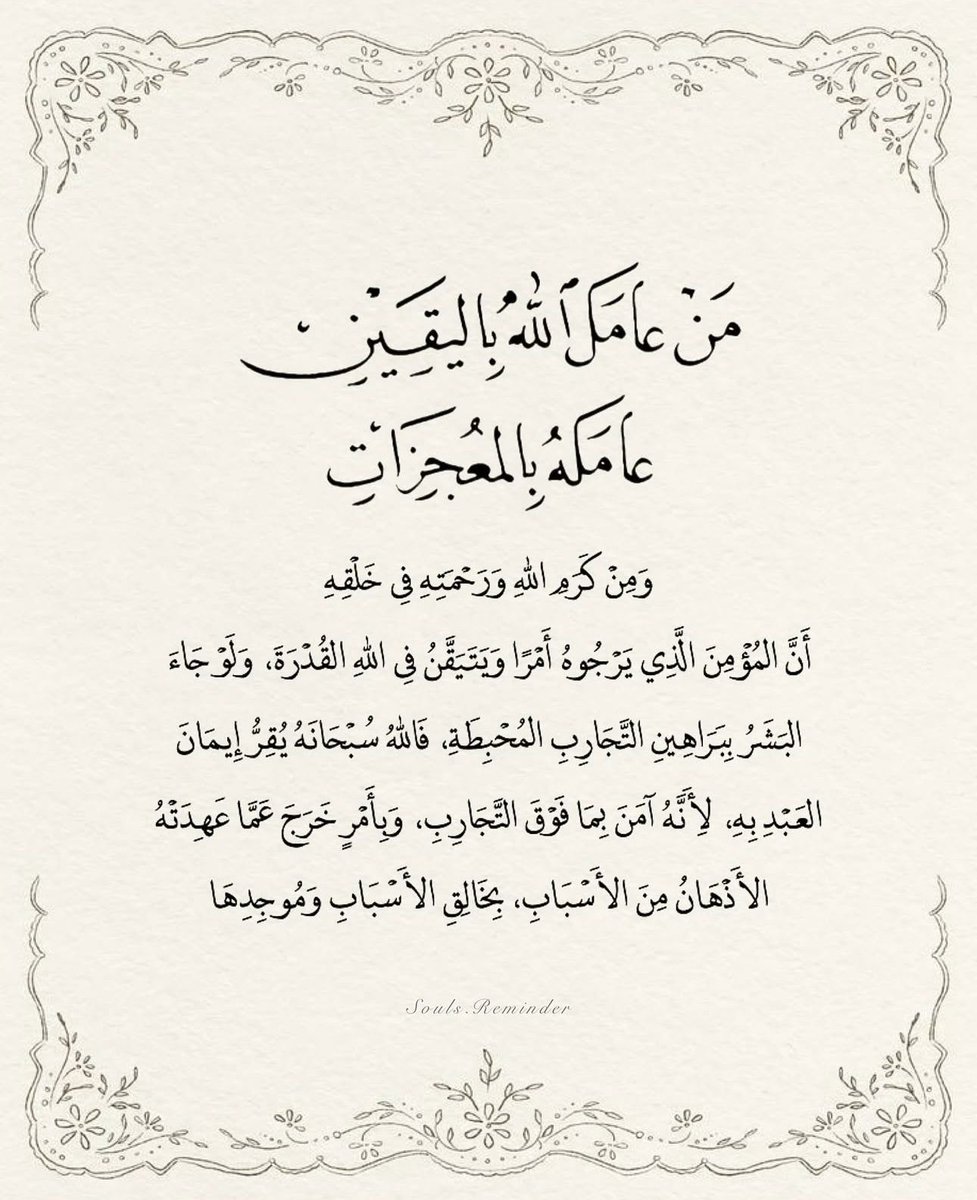 مَنْ عامَلَ ٱللهُ بِاليَقِيَنِ
عامَلهُ بِالمعُجِزَاتِ
وَمِنْ كَرَمِ اللهِ وَرَحْمَتِهِ فِي خَلْقِهِ
أَنَّ المُؤْمِنَ الَّذِي يَرْجُوهُ أَمْرًا وَيَتَيَقَّنُ فِي اللهِ القُدْرَةَ، وَلَوْ جَاءَ
البَشَرُ بِبَرَاهِينِ التَّجَارِبِ المُحْبِطَةِ، فَاللهُ سُبْحَانَهُ يُقِرُّ إِيمَانَ
العَبْدِ بِهِ، لِأَنَّهُ آمَنَ بِمَا فَوْقَ التَّجَارِبِ، وَبِأَمْرٍ خَرَجَ عَمَّا عَهِدَتْهُ
الأَذْهَانُ مِنَ الأَسْبَابِ، بِخَالِقِ الأَسْبَابِ وَمُوجِدِهَا
Souls.Reminder